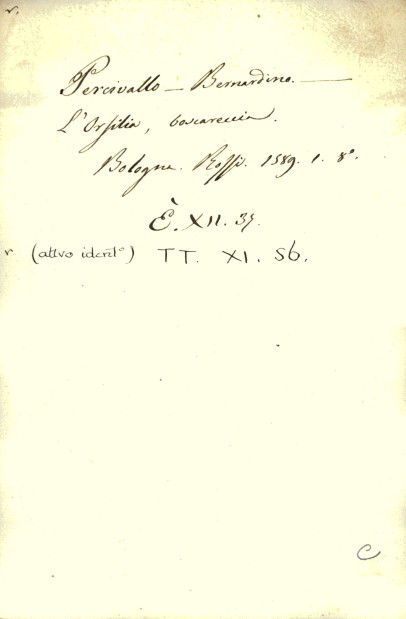 v.
Percivallo — Bernardino. —
L'Orsilia, boscareccia.
Bologna. Rossi. 1589. 1. 8°.
È. XII. 37.
v (altvo ident°) TT. XI. 56.
C